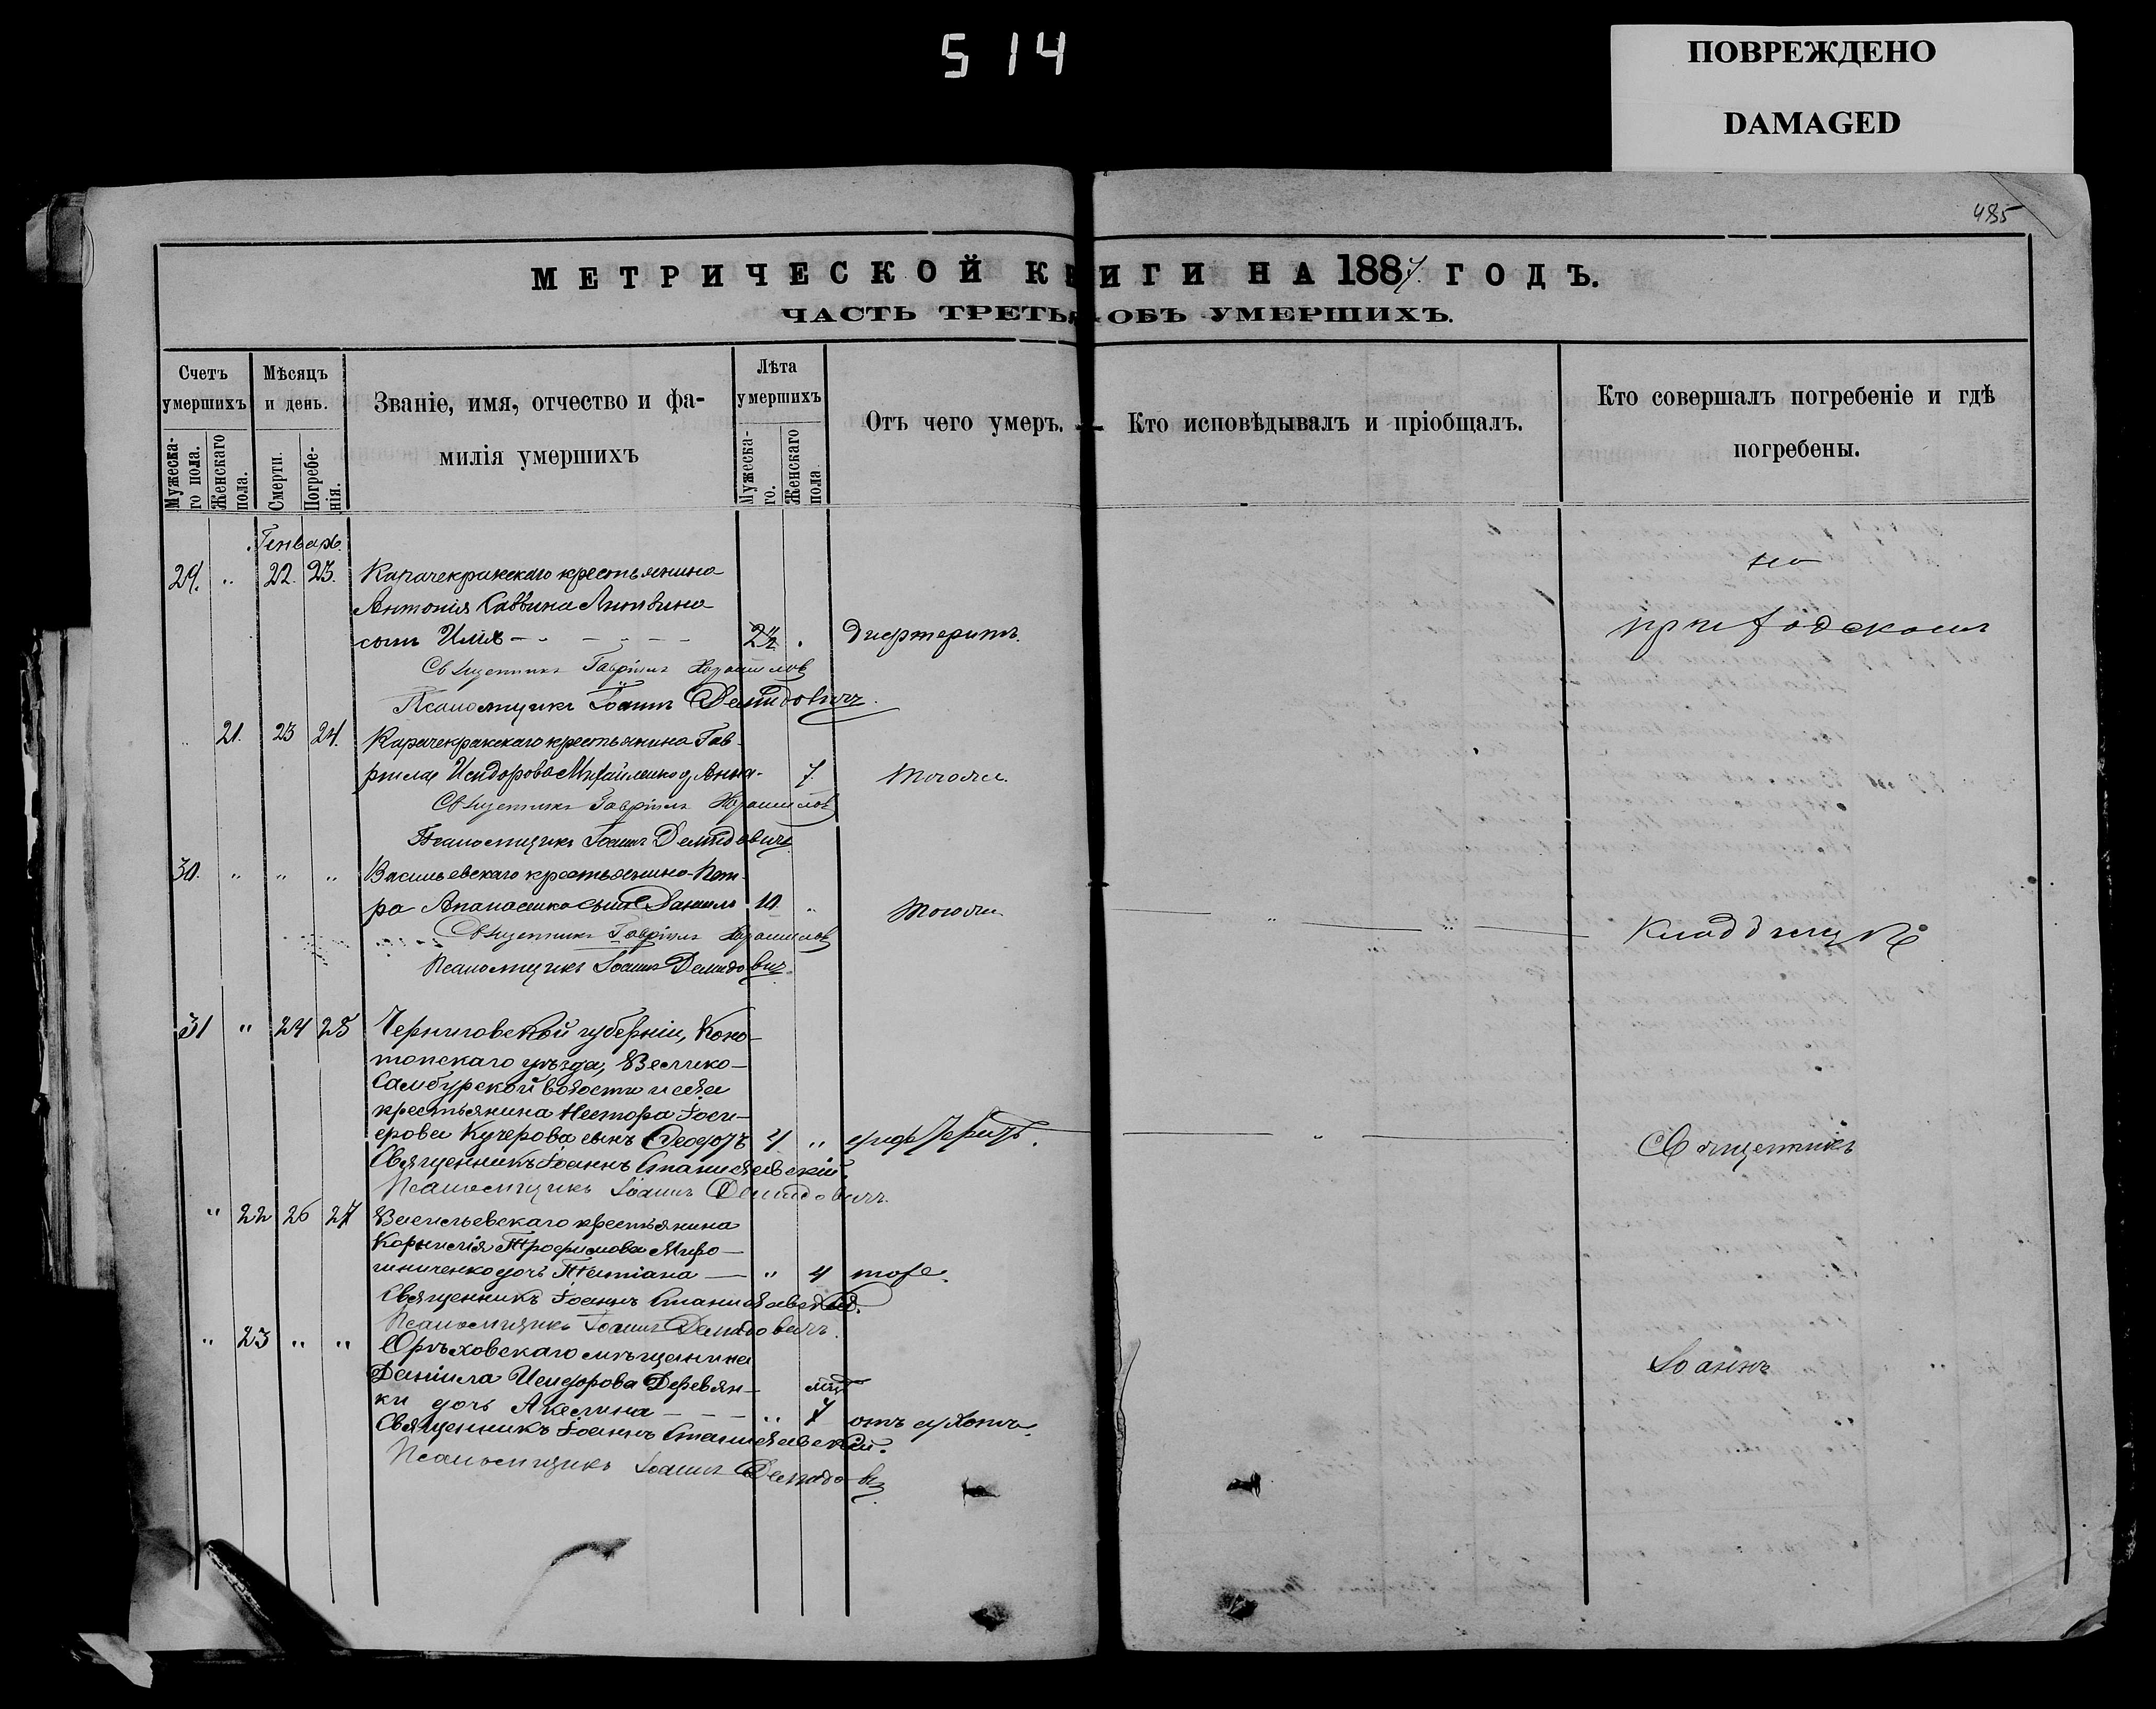 514
ПОВРЕЖДЕНО
DAMAGED
485
МЕТРИЧЕСКОЙ КНИГИ НА 1887. ГОДЪ.
ЧАСТЬ ТРЕТЬЯ ОБЪ УМЕРШИХЪ.
Счетъ умершихъ
Мѣсяцъ и день.
Званіе, имя, отчество и фа-
милія умершихъ
Лѣта умершихъ
Отъ чего умеръ.
Кто исповѣдывалъ и пріобщалъ.
Кто совершалъ погребеніе и гдѣ
погребены.
Мужеска-
го пола.
Женскаго
пола.
Смерти.
Погребе-
нія.
Мужеска-
го.
Женскаго
пола
Генварь.
29. " 22. 23. Карачекракскаго крестьянина
Антонія Саввина Литвина
сынъ Илія дифтеритъ.
Священникъ Гавріилъ
Псаломщикъ Іоаннъ Демидовичъ.
" 21. 23 24. Карачекракскаго крестьянина Гав-
ріила Исидорова Михайленко д. Анна. 7. тогоже.
Священникъ Гавріилъ
Псаломщикъ Іоаннъ Демидовичъ
30. " " " Васильевскаго крестьянина Пет-
ра Апанасенко сынъ Даніилъ 10 " тогоже
Священникъ Гавріилъ
Псаломщикъ Іоаннъ Демидовичъ.
31 " 24 25 Черниговской губерніи, Коно-
топскаго уѣзда, Велико-
Самбурской волости и села
крестьянина Нестора
Кучерова сынъ Ѳеодотъ 4 " дифтеритъ.
Священникъ Іоаннъ Станиславскій.
Псаломщикъ Іоаннъ Демидовичъ.
" 22 26 27 Васильевскаго крестьянина
Корнилія Трофимова Миро-
шниченко дочь Татіана — " 4 тоже.
Священникъ Іоаннъ Станиславскій.
Псаломщикъ Іоаннъ Демидовичъ.
" 23 " " Орѣховскаго мѣщанина
Даніила Исидорова Деревян-
ки дочь Акелина " 7 отъ
Священникъ Іоаннъ Станиславскій.
Псаломщикъ Іоаннъ Демидовичъ
на
приходскомъ
кладбищѣ
Священникъ
Іоаннъ